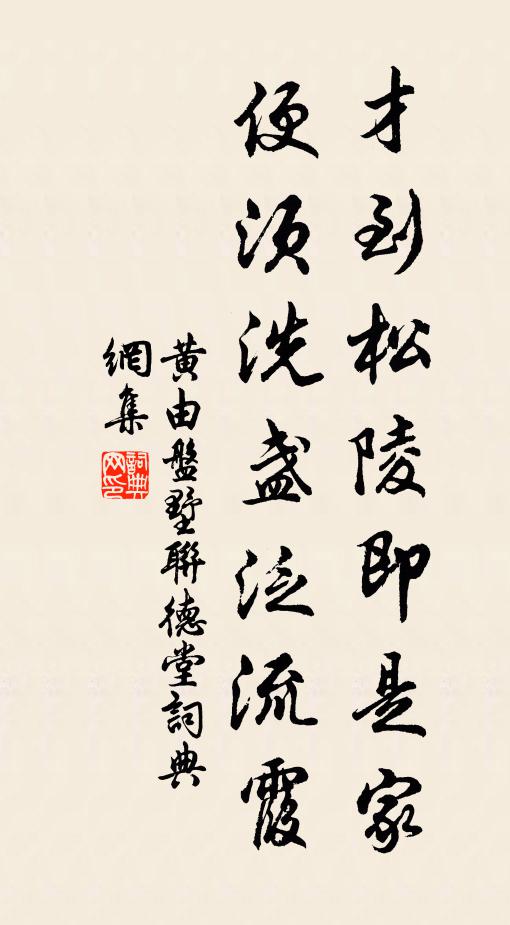 才到松陵即是家
便須洗盞泛流霞
黄由盤墅聯德堂詞典
網集
詞典
网印